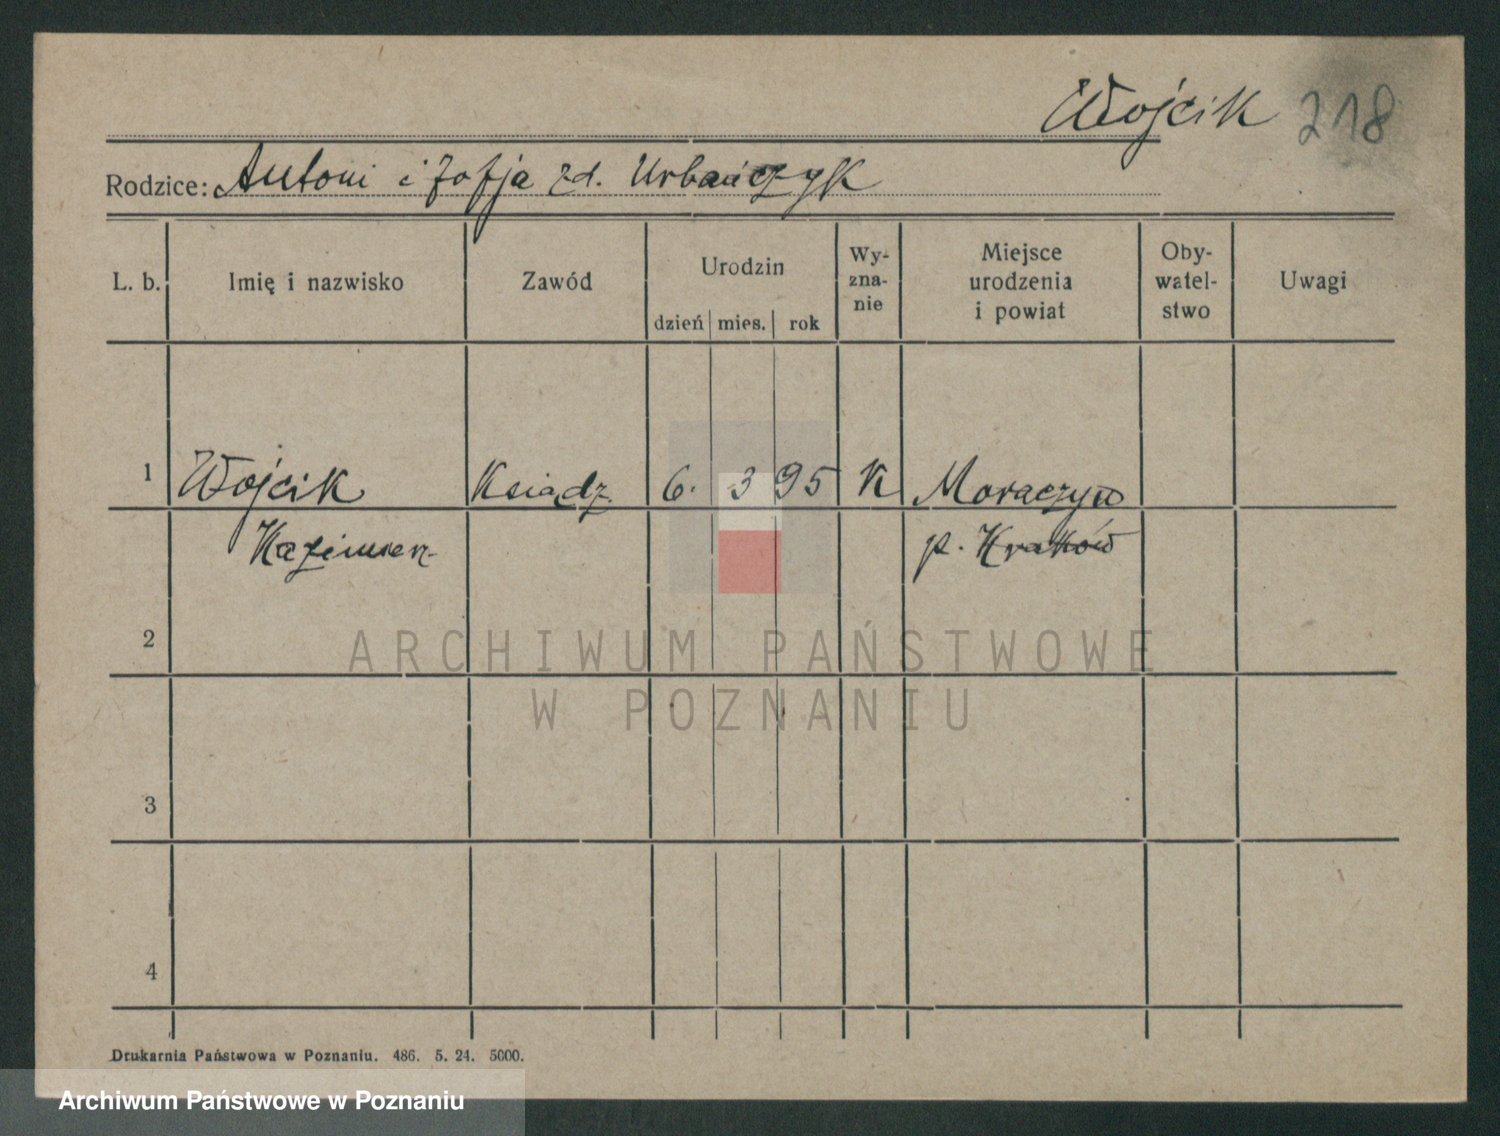 Wójcik 218
Rodzice: Antoni i Zofja zd. Urbańczyk
L. b. Imię i nazwisko Zawód Urodzin dzień mies. rok Wy-zna-nie Miejsce urodzenia i powiat Oby-watel-stwo Uwagi
1 Wójcik Ksiądz 6. 3 95 K
Kazimierz p. Kraków
2
ARCHIWUM PAŃSTWOWE
W POZNANIU
3
4
Drukarnia Państwowa w Poznaniu. 486. 5. 24. 5000.
Archiwum Państwowe w Poznaniu